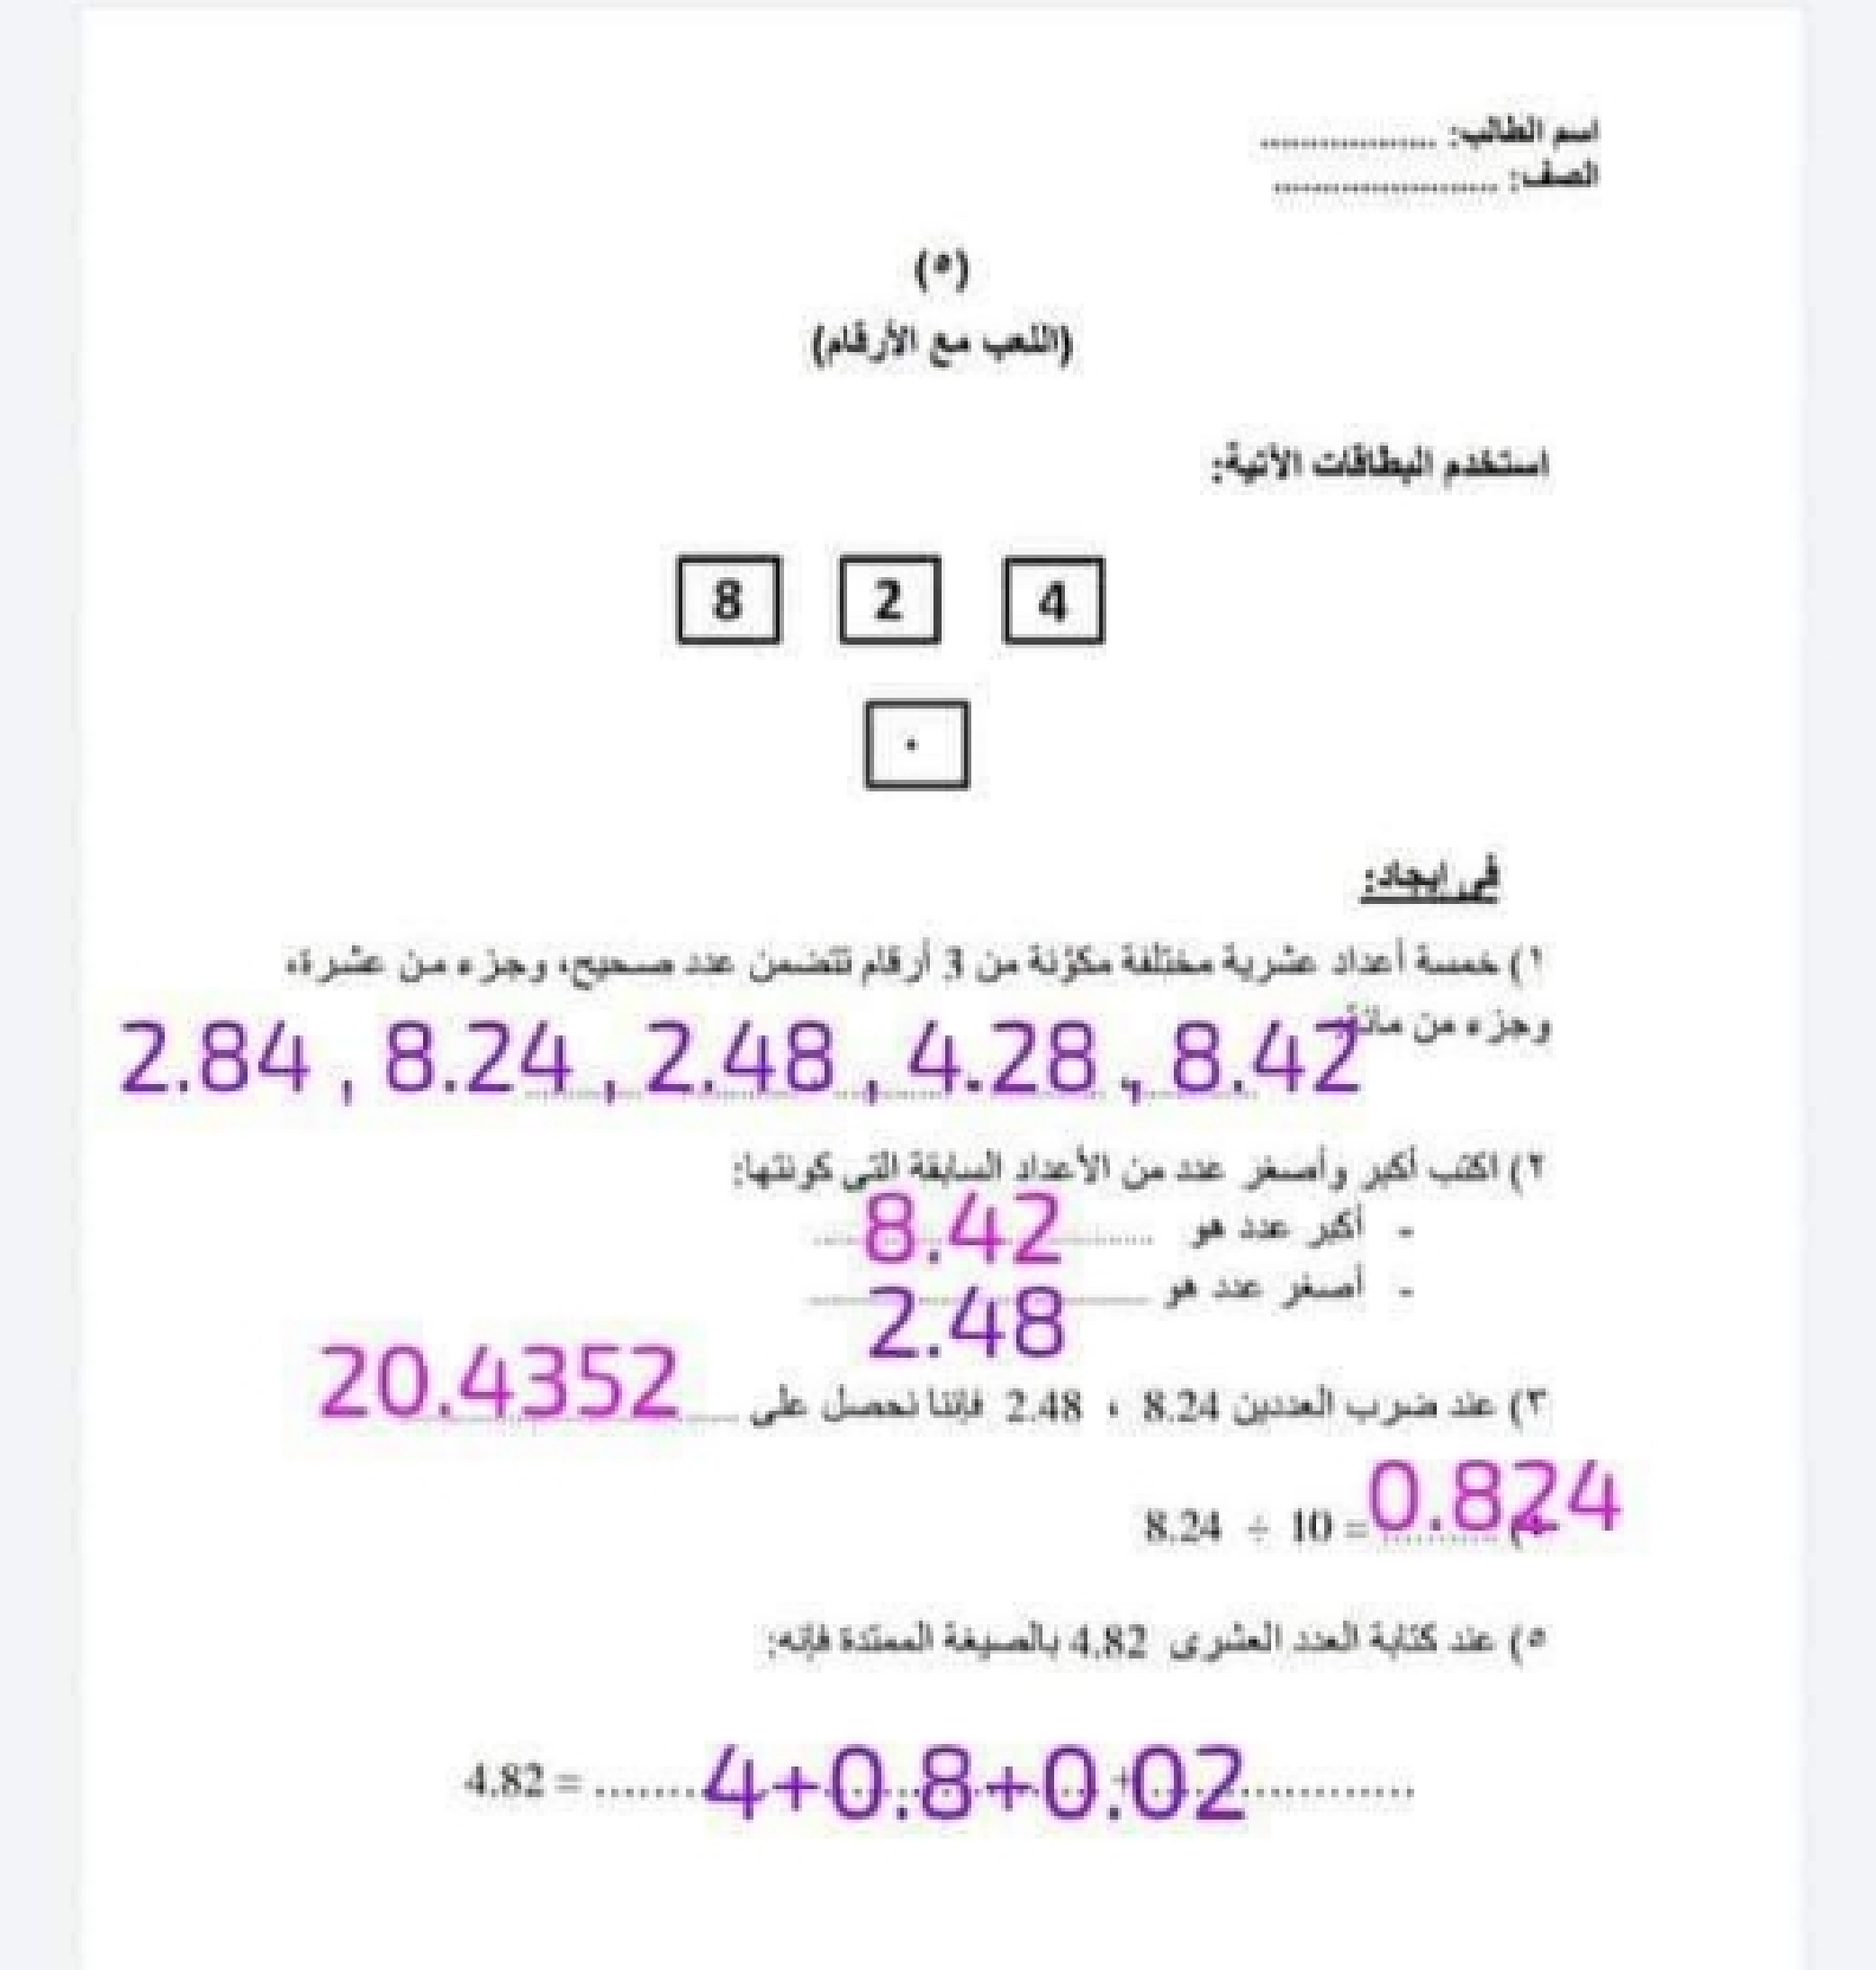 اسم الطالب: ..................
الصف: .......................
(٥)
(اللعب مع الأرقام)
استخدم البطاقات الأتية:
8 2 4
.
في إيجاد:
١) خمسة أعداد عشرية مختلفة مكوّنة من 3 أرقام تتضمن عدد صحيح، وجزء من عشرة،
وجزء من مائة.
2.84 , 8.24 , 2.48 , 4.28 , 8.42
٢) اكتب أكبر وأصغر عدد من الأعداد السابقة التي كونتها:
- أكبر عدد هو 8.42
- أصغر عدد هو 2.48
٣) عند ضرب العددين 8.24 ، 2.48 فإننا نحصل على 20.4352
8.24 ÷ 10 = 0.824
٥) عند كتابة العدد العشرى 4.82 بالصيغة الممتدة فإنه:
4.82 = 4+0.8+0.02